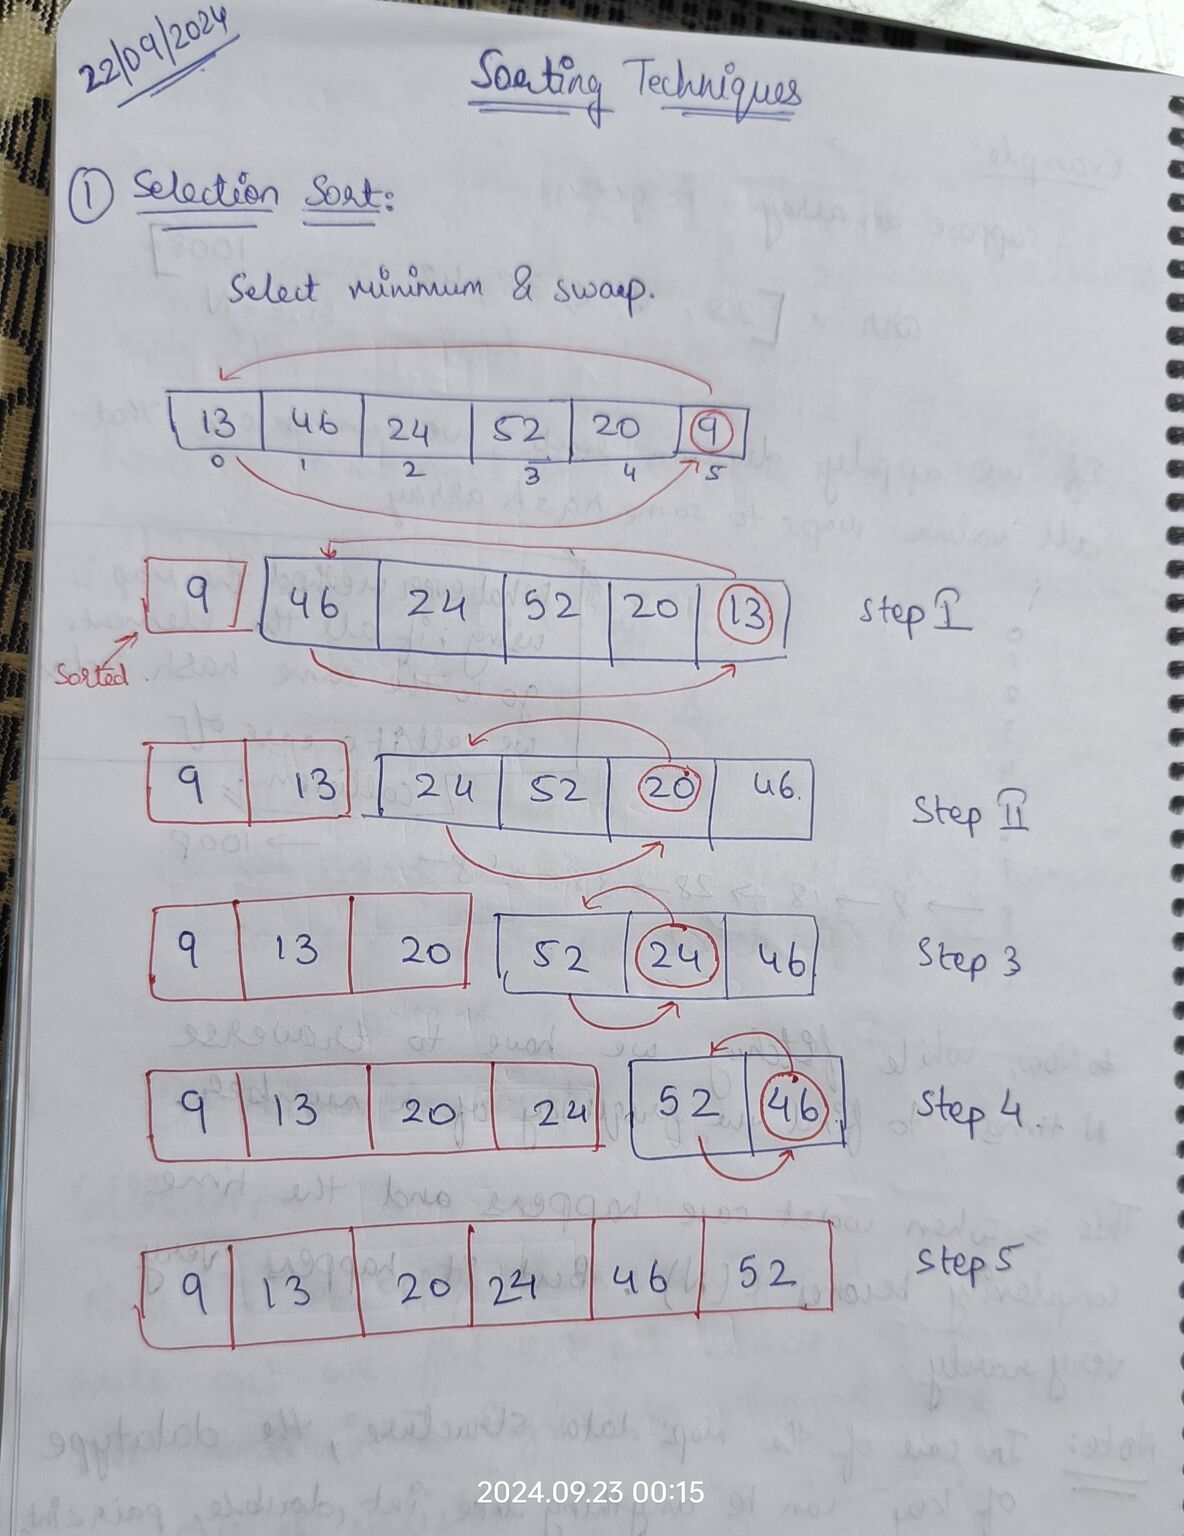 22/09/2024
Sorting Techniques
① Selection Sort:
Select minimum & swap.
13 46 24 52 20 9
0 1 2 3 4 5
9 46 24 52 20 13 Step I
Sorted
9 13 24 52 20 46. Step II
9 13 20 52 24 46 Step 3
9 13 20 24 52 46 Step 4.
9 13 20 24 46 52 Step 5
2024.09.23 00:15